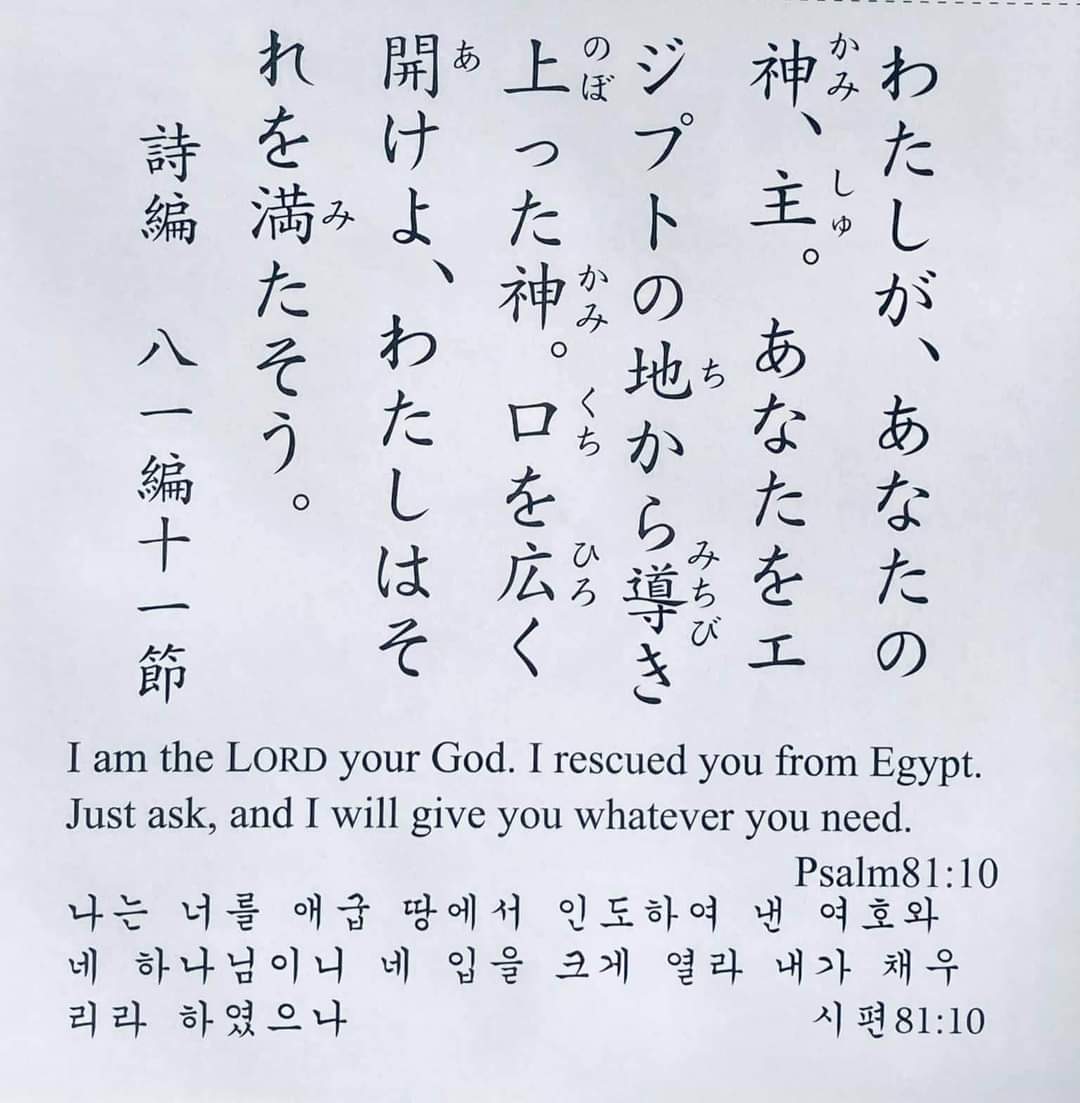 わたしが、あなたの
神、主。 あなたをエ
ジプトの地から導き
上った神。口を広く
開けよ、わたしはそ
れを満たそう。
詩編 八一編十一節
かみ しゅ
ち みちび
のぼ かみ くち ひろ
あ
み
I am the LORD your God. I rescued you from Egypt.
Just ask, and I will give you whatever you need.
Psalm81:10
나는 너를 애굽 땅에서 인도하여 낸 여호와
네 하나님이니 네 입을 크게 열라 내가 채우
리라 하였으나 시편81:10